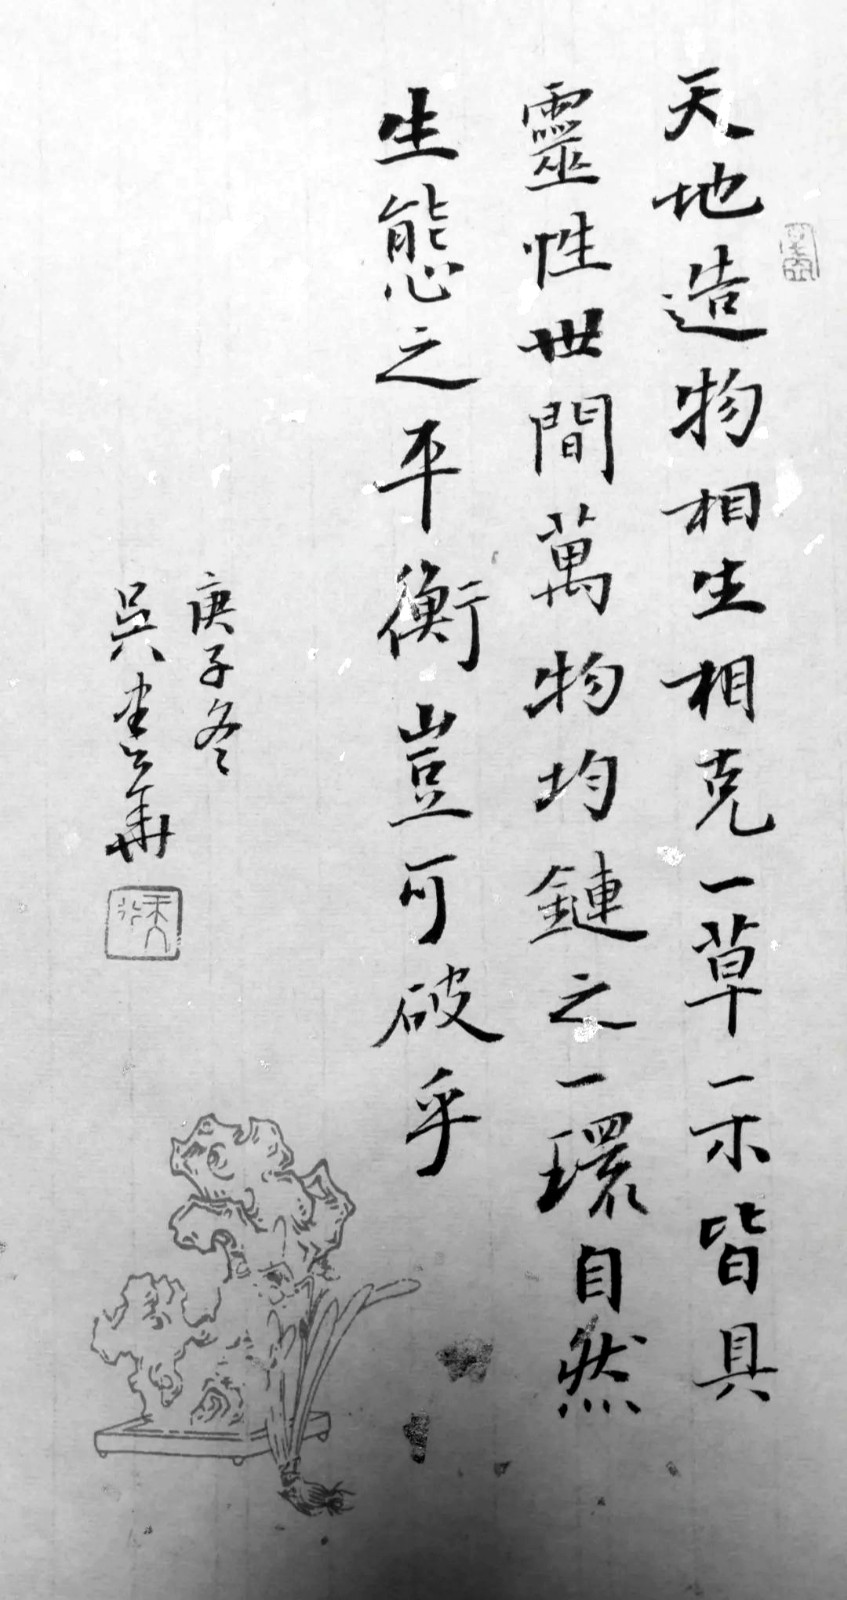 天地造物相生相克一草一木皆具
靈性世間萬物均鏈之一環自然
生態之平衡豈可破乎
庚子冬
吳
華